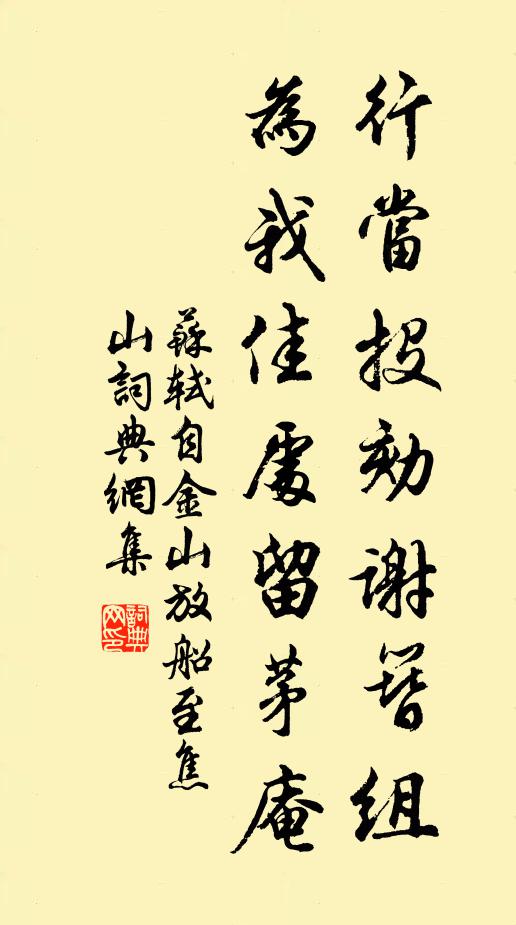 行當投劾謝簪組
為我佳處留茅庵
蘇軾自金山放船至焦
山詞典網集
詞典
网印